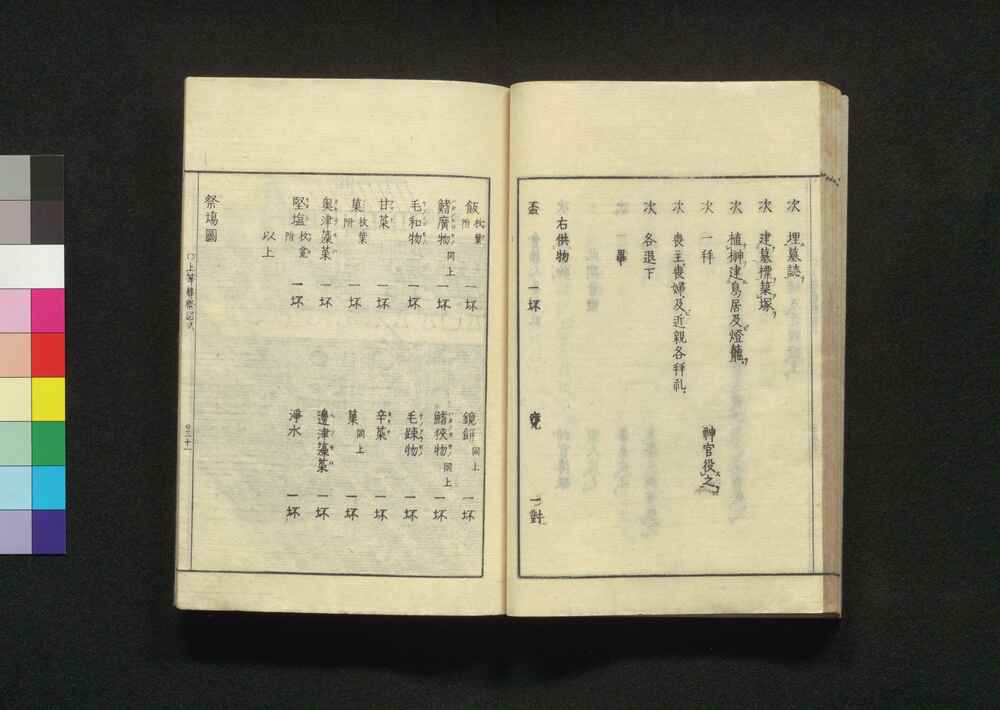 次 埋墓誌
次 建墓標築塚
次 植榊建鳥居及燈籠
次 一拜 神官役之
次 喪主喪婦及近親各拜礼
次 各退下
畢
右供物
盃 一坏 一對
飯 枚葉 一坏 鏡餅 同上 一坏
鰭廣物 同上 一坏 鰭狹物 同上 一坏
毛和物 一坏 毛麁物 一坏
甘菜 一坏 辛菜 一坏
菓 枚葉附 一坏 菓 同上 一坏
奥津藻菜 一坏 邊津藻菜 一坏
堅塩 附 一坏 淨水 一坏
以上
祭塲圖